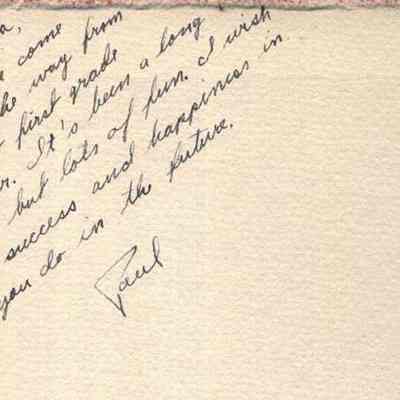 a,
come
the way from
first grade
r. It's been a long
but lots of fun. I wish
success and happiness in
you do in the future.
Paul